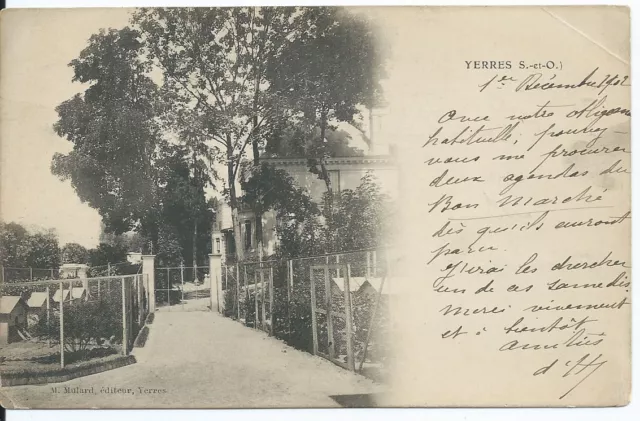 YERRES S.-et-O.)
1er Décembre 1902
Avec votre obligeance
habituelle, pourrez
vous me procurer
deux agendas du
Bon Marché
dès qu'ils auront
paru.
J'irai les chercher
un de ces samedis.
Merci vivement
et à bientôt
Amitiés
d'H
M. Mulard, éditeur, Yerres